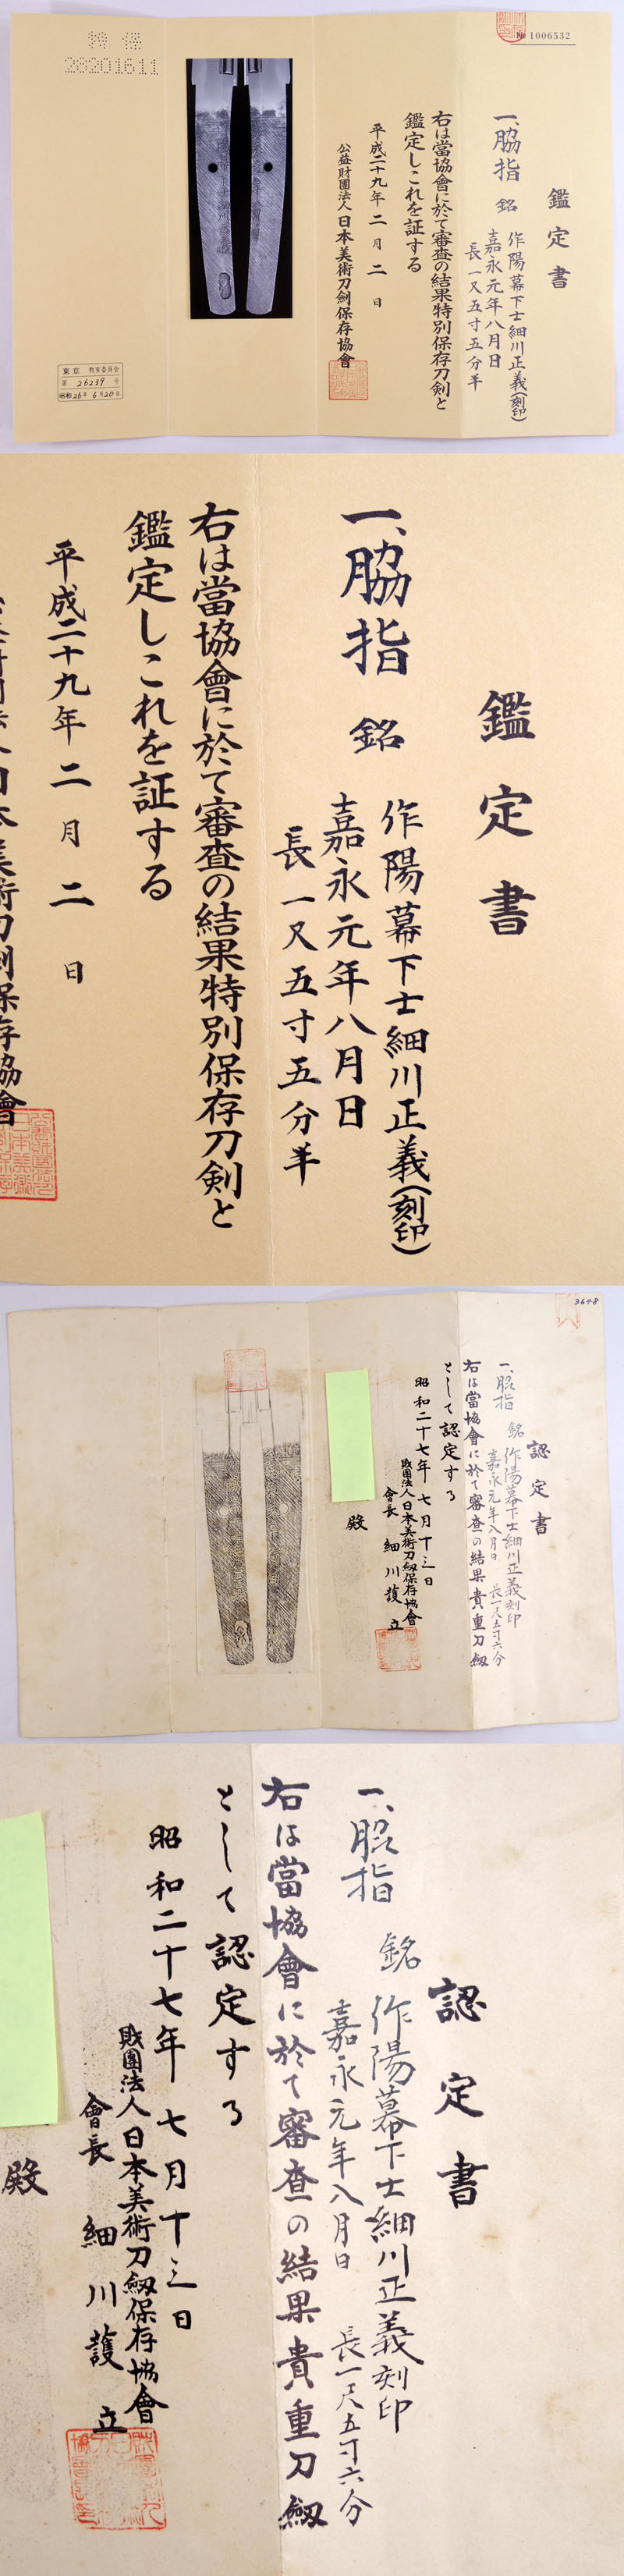 特保
28201611
№ 1006532
鑑定書
一、脇指 銘
作陽幕下士細川正義(刻印)
嘉永元年八月日
長一尺五寸五分半
右は當協會に於て審査の結果特別保存刀剣と
鑑定しこれを証する
平成二十九年二月二日
公益財團法人日本美術刀剣保存協會
東京 教育委員会
第 26239 号
昭和26年6月20日
鑑定書
一、脇指 銘
作陽幕下士細川正義(刻印)
嘉永元年八月日
長一尺五寸五分半
右は當協會に於て審査の結果特別保存刀剣と
鑑定しこれを証する
平成二十九年二月二日
日本美術刀剣保存協會
3648
認定書
一、脇指 銘
作陽幕下士細川正義刻印
嘉永元年八月日 長一尺五寸六分
右は當協會に於て審査の結果貴重刀剱
として認定する
昭和二十七年七月十三日
財團法人日本美術刀剱保存協會
會長 細川護立
殿
認定書
一、脇指 銘
作陽幕下士細川正義刻印
嘉永元年八月日 長一尺五寸六分
右は當協會に於て審査の結果貴重刀剱
として認定する
昭和二十七年七月十三日
財團法人日本美術刀剱保存協會
會長 細川護立
殿